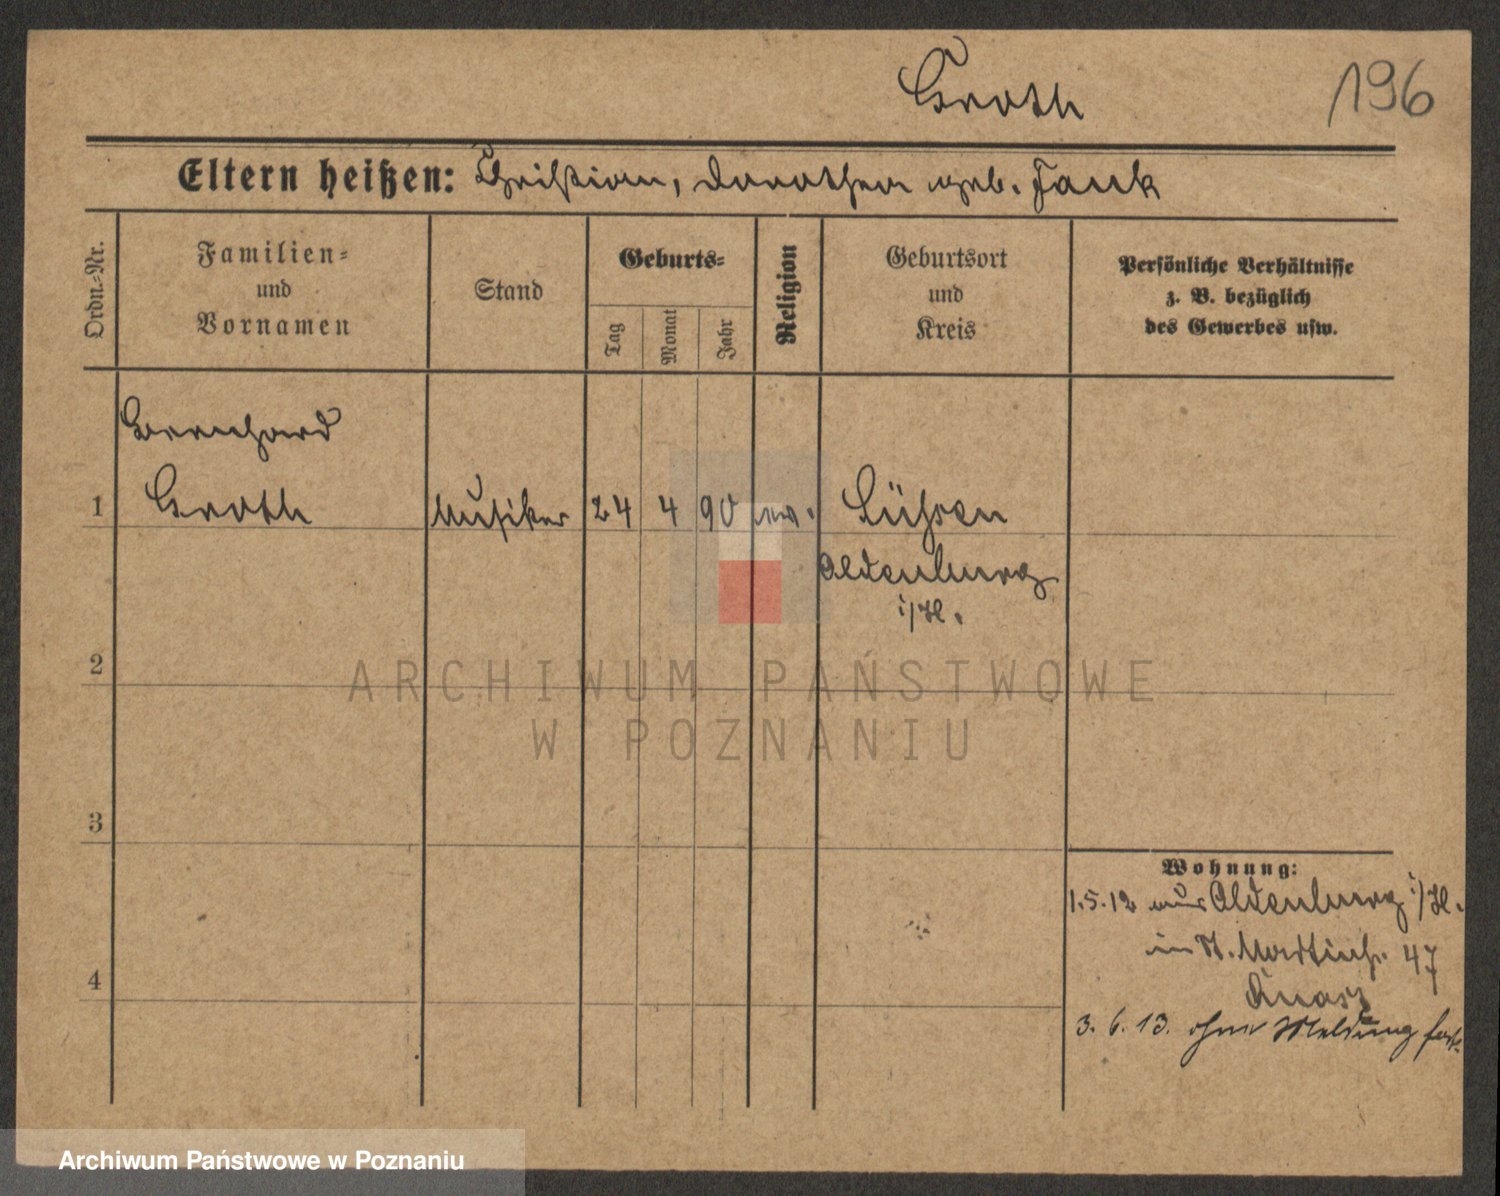 Groth
196
Eltern heißen: Christian, Dorothea geb. Fauk
Ordn.-Nr.
Familien-
und
Vornamen
Stand
Geburts-
Tag
Monat
Jahr
Religion
Geburtsort
und
Kreis
Persönliche Verhältnisse
z. B. bezüglich
des Gewerbes usw.
Bernhard
1 Groth Musiker 24 4 90 ew.
Oldenburg
i/H.
2
3
4
Wohnung:
1.5.12 aus Oldenburg i/H.
in St. Martinstr. 47
3. 6. 13. ohne Meldung fort.
ARCHIWUM PAŃSTWOWE
W POZNANIU
Archiwum Państwowe w Poznaniu